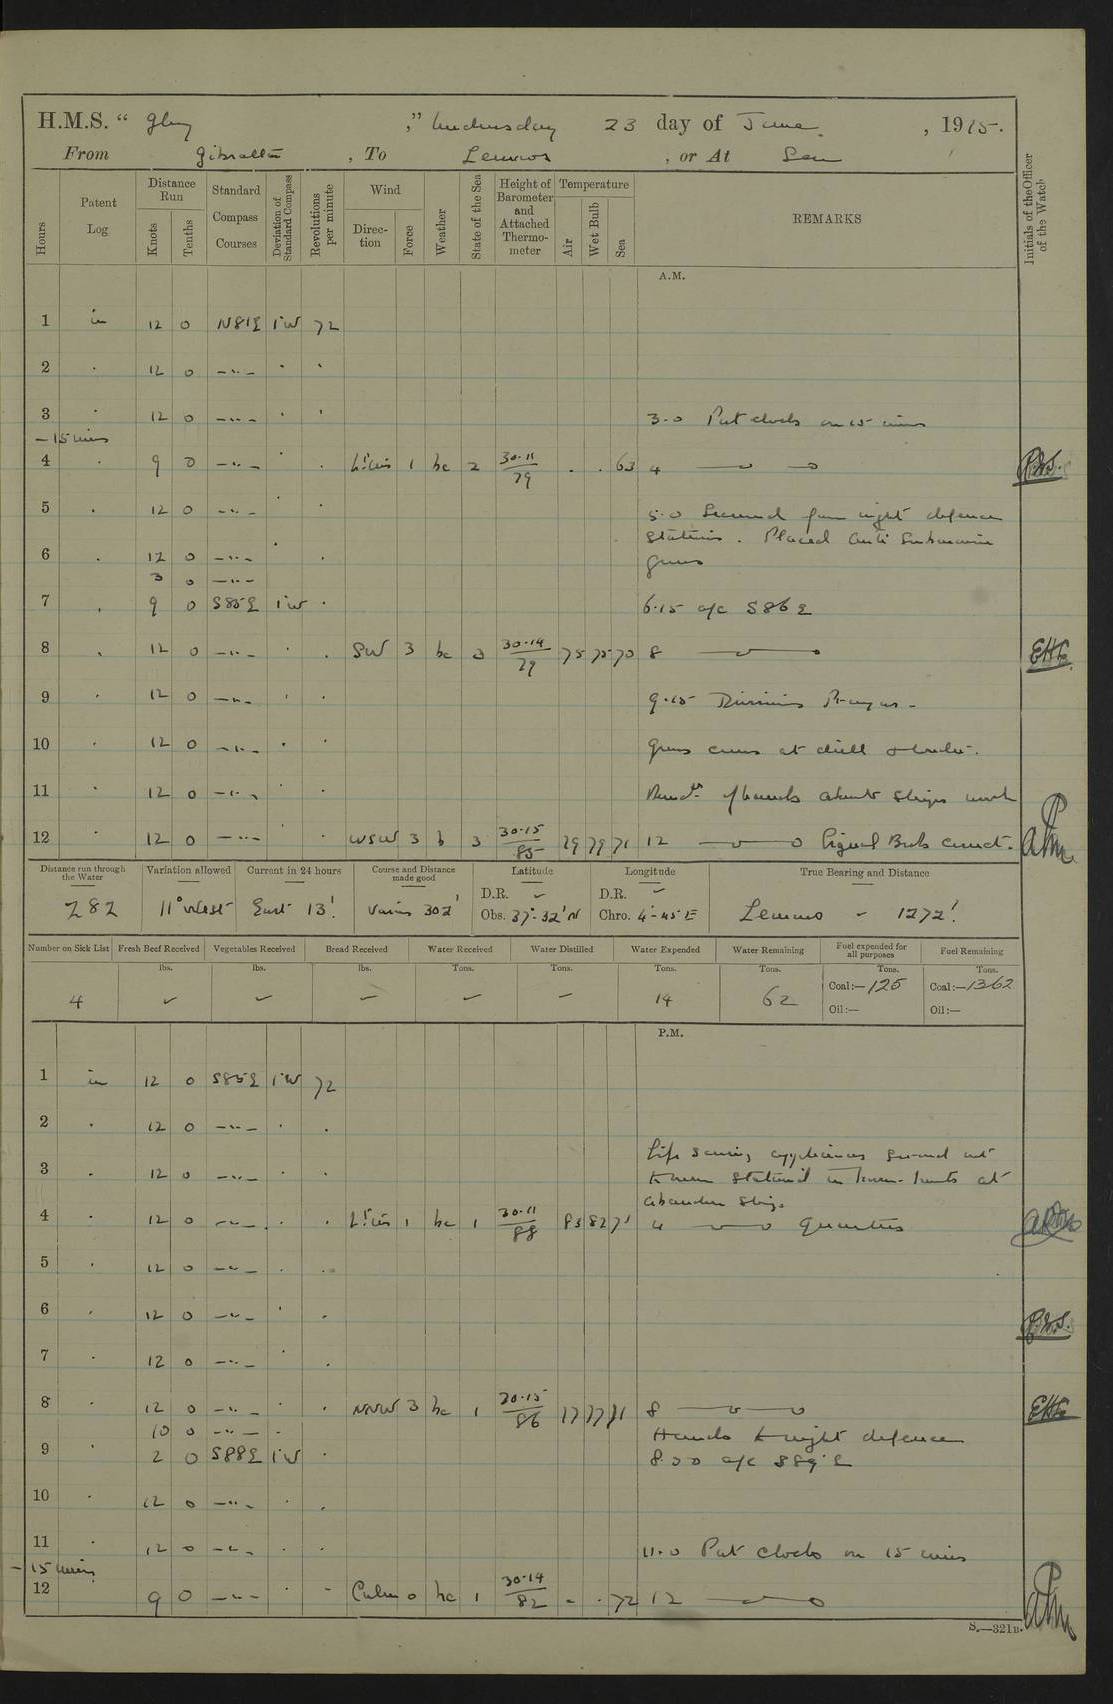 H.M.S. " Glory ," Wednesday 23 day of June , 1915.
From Gibraltar , To Lemnos , or At Sea
Hours Patent Log Distance Run Knots Tenths Standard Compass Courses Deviation of Standard Compass Revolutions per minute Wind Direction Force Weather State of the Sea Height of Barometer and Attached Thermometer Temperature Air Wet Bulb Sea REMARKS Initials of the Officer of the Watch
A.M.
1 in 12 0 N81E 1°W 72
2 . 12 0 -"- . .
3 . 12 0 -"- . . 3.0 Put clocks on 15 mins
- 15 mins
4 . 9 0 -"- . . Lt airs 1 bc 2 30.11/79 . . 63 4
5 . 12 0 -"- . . 5.0 Secured from night defence
stations. Placed Anti Submarine
6 . 12 0 -"- . . guns
3 0 -"-
7 . 9 0 S85E 1°W . 6.15 a/c S86E
8 . 12 0 -"- . . SW 3 bc 3 30.14/79 75 75 70 8
9 . 12 0 -"- . . 9.15 Divisions Prayers -
10 . 12 0 -"- . . Guns crews at drill
11 . 12 0 -"- . . Remdr of hands about ships work
12 . 12 0 -"- . . WSW 3 b 3 30.15/85 79 79 71 12 Signal Books correct.
Distance run through the Water Variation allowed Current in 24 hours Course and Distance made good Latitude Longitude True Bearing and Distance
282 11° West East 13' Various 302' D.R. - Obs. 37°-32' N D.R. - Chro. 4°-45' E Lemnos - 1272'
Number on Sick List Fresh Beef Received Vegetables Received Bread Received Water Received Water Distilled Water Expended Water Remaining Fuel expended for all purposes Fuel Remaining
lbs. lbs. lbs. Tons. Tons. Tons. Tons. Tons. Tons.
4 - - - - - 14 62 Coal:- 125 Coal:- 1362
Oil:— Oil:—
P.M.
1 in 12 0 S85E 1°W 72
2 . 12 0 -"- . .
Life saving appliances served out
3 . 12 0 -"- . . & men stationed in
abandon ship.
4 . 12 0 -"- . . Lt airs 1 bc 1 30.11/88 83 82 71 4 Quarters
5 . 12 0 -"- . .
6 . 12 0 -"- . .
7 . 12 0 -"- . .
8 . 12 0 -"- . . NNW 3 bc 1 30.15/86 77 77 71 8
10 0 -"- - Hands to night defence
9 . 2 0 S88E 1°W . 8.50 a/c S89°E
10 . 12 0 -"- . .
11 . 12 0 -"- . . 11.0 Put clocks on 15 mins
- 15 mins
12 9 0 -"- . - Calm 0 bc 1 30.14/82 - . 72 12
S.—321B.